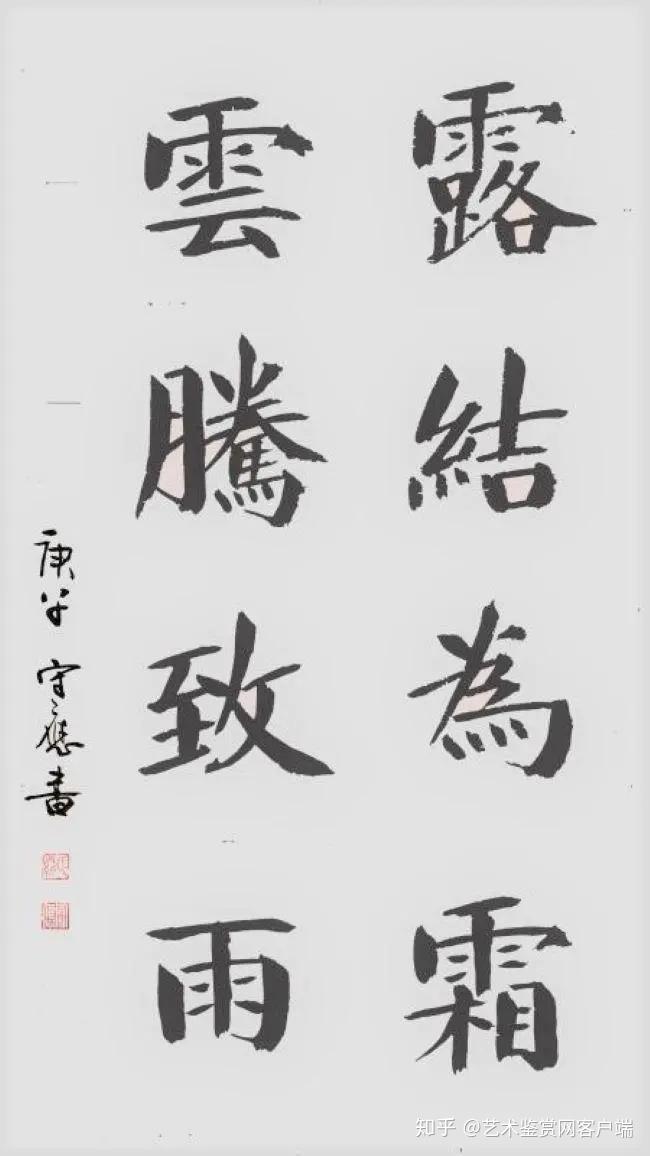 露結為霜
雲騰致雨
庚子 守應書
知乎 @艺术鉴赏网客户端